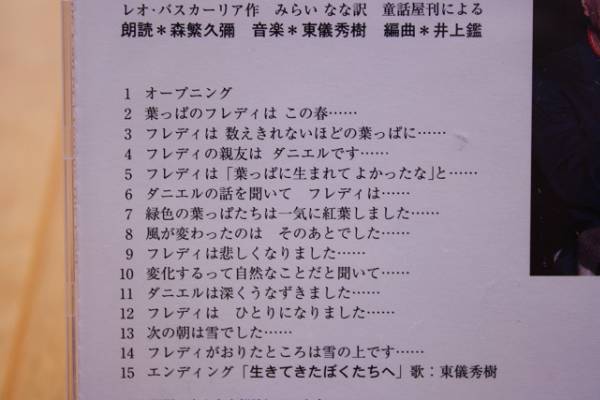 レオ・バスカーリア作　みらい なな訳　童話屋刊による
朗読＊森繁久彌　音楽＊東儀秀樹　編曲＊井上鑑
1 オープニング
2 葉っぱのフレディは この春……
3 フレディは 数えきれないほどの葉っぱに……
4 フレディの親友は ダニエルです……
5 フレディは「葉っぱに生まれて よかったな」と……
6 ダニエルの話を聞いて　フレディは……
7 緑色の葉っぱたちは一気に紅葉しました……
8 風が変わったのは　そのあとでした……
9 フレディは悲しくなりました……
10 変化するって自然なことだと聞いて……
11 ダニエルは深くうなずきました……
12 フレディは　ひとりになりました……
13 次の朝は雪でした……
14 フレディがおりたところは雪の上です……
15 エンディング「生きてきたぼくたちへ」歌：東儀秀樹